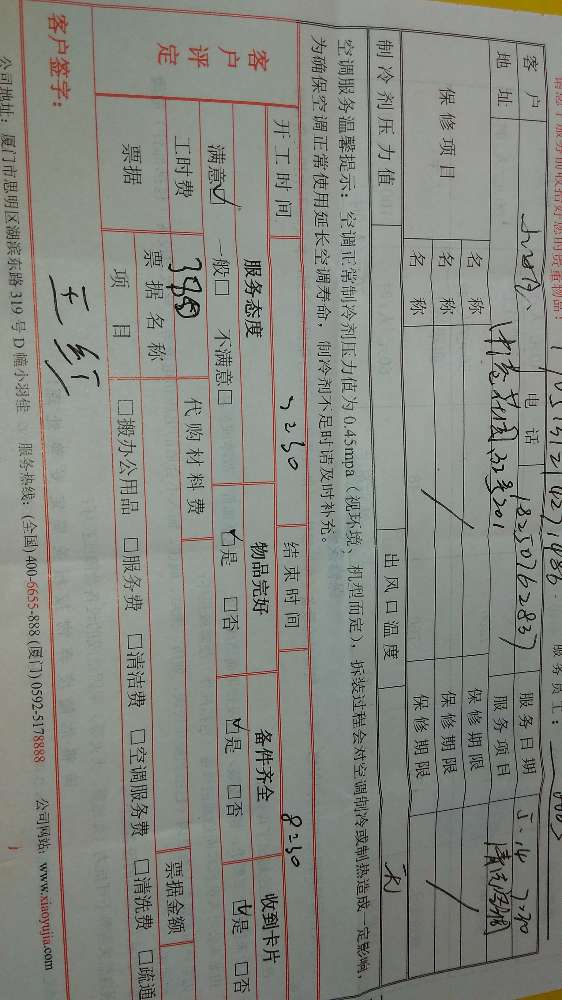 请您于服务前收拾好您的贵重物品!
服务员工:
客户 电话 18250762837 服务日期 5.14 7:30
地址 花园32号201 服务项目
保修项目 名称 保修期限
名称 保修期限
名称 保修期限
制冷剂压力值 出风口温度
空调服务温馨提示:空调正常制冷剂压力值为0.45mpa(视环境、机型而定),拆装过程会对空调制冷或制热造成一定影响,
为确保空调正常使用延长空调寿命,制冷剂不足时请及时补充。
开工时间 7:30 结束时间 8:30
客户评定
服务态度 物品完好 备件齐全 收到卡片
满意☑ 一般□ 不满意□ ☑是 □否 ☑是 □否 ☑是 □否
工时费 代购材料费
票据 票据名称 票据金额
项目 □搬办公用品 □服务费 □清洁费 □空调服务费 □清洗费 □疏通
客户签字:王红
公司地址:厦门市思明区湖滨东路319号D幢小羽佳 服务热线:(全国)400-6655-888 (厦门)0592-5178888 公司网站:www.xiaoyujia.com